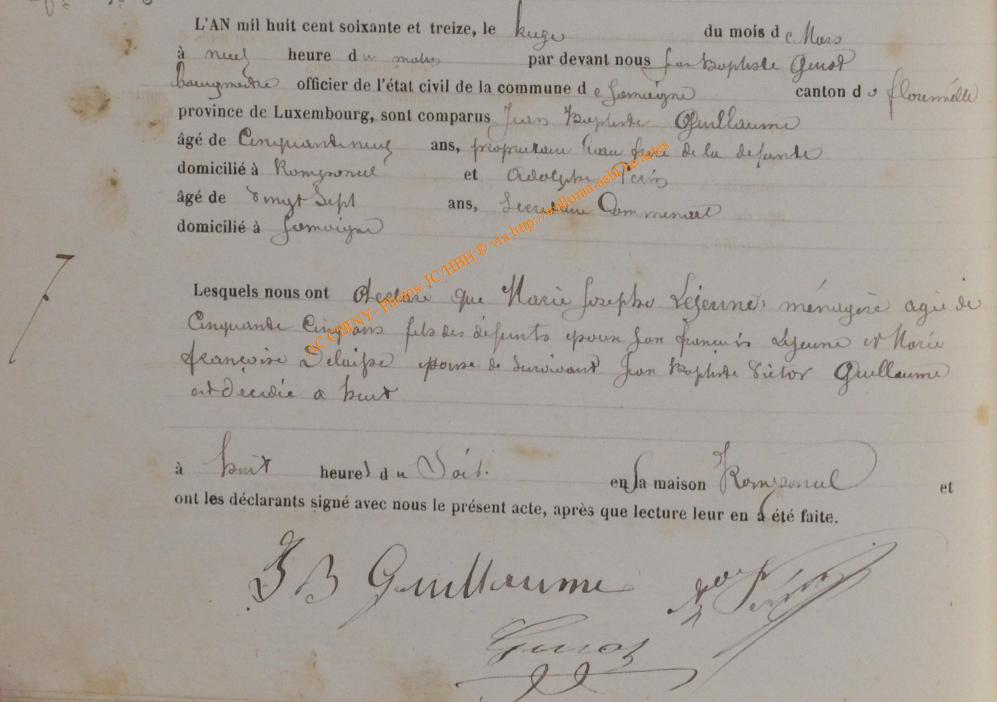 L'AN mil huit cent soixante et treize, le du mois de Mars
à neuf heure du matin par devant nous Jean Baptiste Guiot
bourgmestre officier de l'état civil de la commune de Jamoigne canton de florenville
province de Luxembourg, sont comparus Jean Baptiste Guillaume
âgé de Cinquante neuf ans, propriétaire beau frère de la défunte
domicilié à Romponcel et Adolphe Perin
âgé de vingt Sept ans, Secrétaire Communal
domicilié à Jamoigne
7
Lesquels nous ont déclaré que Marie Josephe Lejeune, ménagère agée de
Cinquante Cinq ans fils des défunts époux Jean françois Lejeune et Marie
françoise épouse de survivant Jean Baptiste Victor Guillaume
est décédée a huit
à huit heures du Soir. en sa maison Romponcel et
ont les déclarants signé avec nous le présent acte, après que lecture leur en a été faite.
J B Guillaume
Ad Perin
Guiot
AC CHINY - Photos JC/HBH © via http://